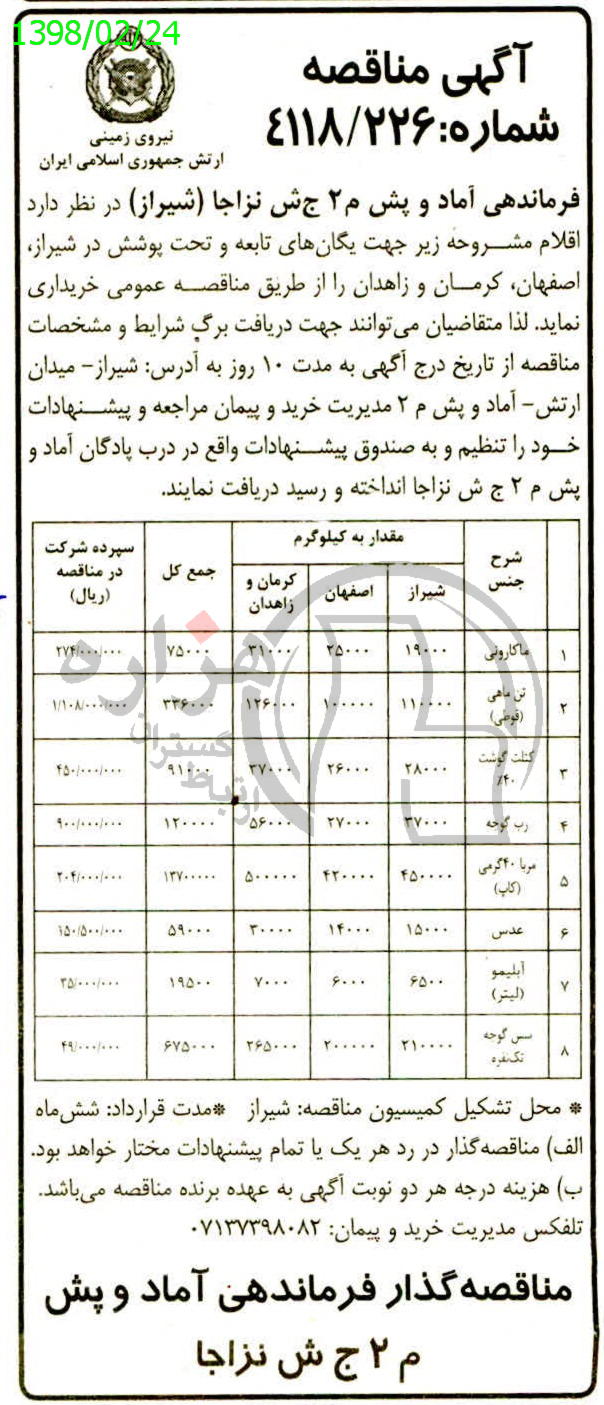 1398/02/24
آگهی مناقصه
شماره: ۴۱۱۸/۲۲۶
نیروی زمینی
ارتش جمهوری اسلامی ایران
فرماندهی آماد و پش م۲ ج‌ش نزاجا (شیراز) در نظر دارد
اقلام مشروحه زیر جهت یگان‌های تابعه و تحت پوشش در شیراز،
اصفهان، کرمان و زاهدان را از طریق مناقصه عمومی خریداری
نماید. لذا متقاضیان می‌توانند جهت دریافت برگ شرایط و مشخصات
مناقصه از تاریخ درج آگهی به مدت ۱۰ روز به آدرس: شیراز- میدان
ارتش- آماد و پش م ۲ مدیریت خرید و پیمان مراجعه و پیشنهادات
خود را تنظیم و به صندوق پیشنهادات واقع در درب پادگان آماد و
پش م ۲ ج ش نزاجا انداخته و رسید دریافت نمایند.
شرح جنس | مقدار به کیلوگرم | جمع کل | سپرده شرکت در مناقصه (ریال)
شیراز | اصفهان | کرمان و زاهدان
۱ | ماکارونی | ۱۹۰۰۰ | ۲۵۰۰۰ | ۳۱۰۰۰ | ۷۵۰۰۰ | ۲۷۴/۰۰۰/۰۰۰
۲ | تن ماهی (قوطی) | ۱۱۰۰۰۰ | ۱۰۰۰۰۰ | ۱۲۶۰۰۰ | ۳۳۶۰۰۰ | ۱/۱۰۸/۰۰۰/۰۰۰
۳ | کتلت گوشت ۴۰٪ | ۲۸۰۰۰ | ۲۶۰۰۰ | ۳۷۰۰۰ | ۹۱۰۰۰ | ۴۵۰/۰۰۰/۰۰۰
۴ | رب گوجه | ۳۷۰۰۰ | ۲۷۰۰۰ | ۵۶۰۰۰ | ۱۲۰۰۰۰ | ۹۰۰/۰۰۰/۰۰۰
۵ | مربا ۴۰گرمی (کاپ) | ۴۵۰۰۰۰ | ۴۲۰۰۰۰ | ۵۰۰۰۰۰ | ۱۳۷۰۰۰۰۰ | ۲۰۴/۰۰۰/۰۰۰
۶ | عدس | ۱۵۰۰۰ | ۱۴۰۰۰ | ۳۰۰۰۰ | ۵۹۰۰۰ | ۱۵۰/۵۰۰/۰۰۰
۷ | آبلیمو (لیتر) | ۶۵۰۰ | ۶۰۰۰ | ۷۰۰۰ | ۱۹۵۰۰ | ۳۵/۰۰۰/۰۰۰
۸ | سس گوجه تک‌نفره | ۲۱۰۰۰۰ | ۲۰۰۰۰۰ | ۲۶۵۰۰۰ | ۶۷۵۰۰۰ | ۴۹/۰۰۰/۰۰۰
هزاره
گستران
ارتباط
* محل تشکیل کمیسیون مناقصه: شیراز *مدت قرارداد: شش‌ماه
الف) مناقصه‌گذار در رد هر یک یا تمام پیشنهادات مختار خواهد بود.
ب) هزینه درجه هر دو نوبت آگهی به عهده برنده مناقصه می‌باشد.
تلفکس مدیریت خرید و پیمان: ۰۷۱۳۷۳۹۸۰۸۲
مناقصه‌گذار فرماندهی آماد و پش
م ۲ ج ش نزاجا